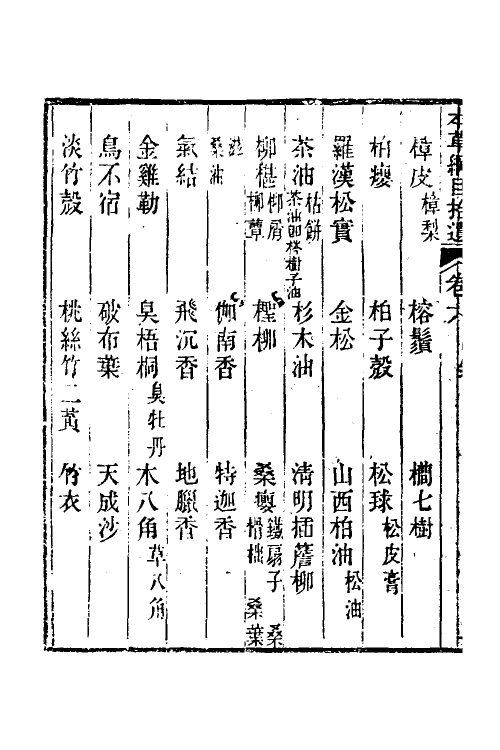 本草綱目拾遺 卷六
樟皮 樟梨 榕鬚 櫚七樹
柏癭 柏子殼 松球 松皮膏
羅漢松實 金松 山西柏油 松油
茶油 枯餅 茶油即梣樹子油 杉木油 清明插簷柳
柳椹 柳屑 柳蕈 檉柳 桑癭 鐵扇子 榾柮 桑 桑葉
桑油 伽南香 特迦香
氣結 飛沉香 地臘香
金雞勒 臭梧桐 臭牡丹 木八角 草八角
鳥不宿 破布葉 天成沙
淡竹殼 桃絲竹二黃 竹衣